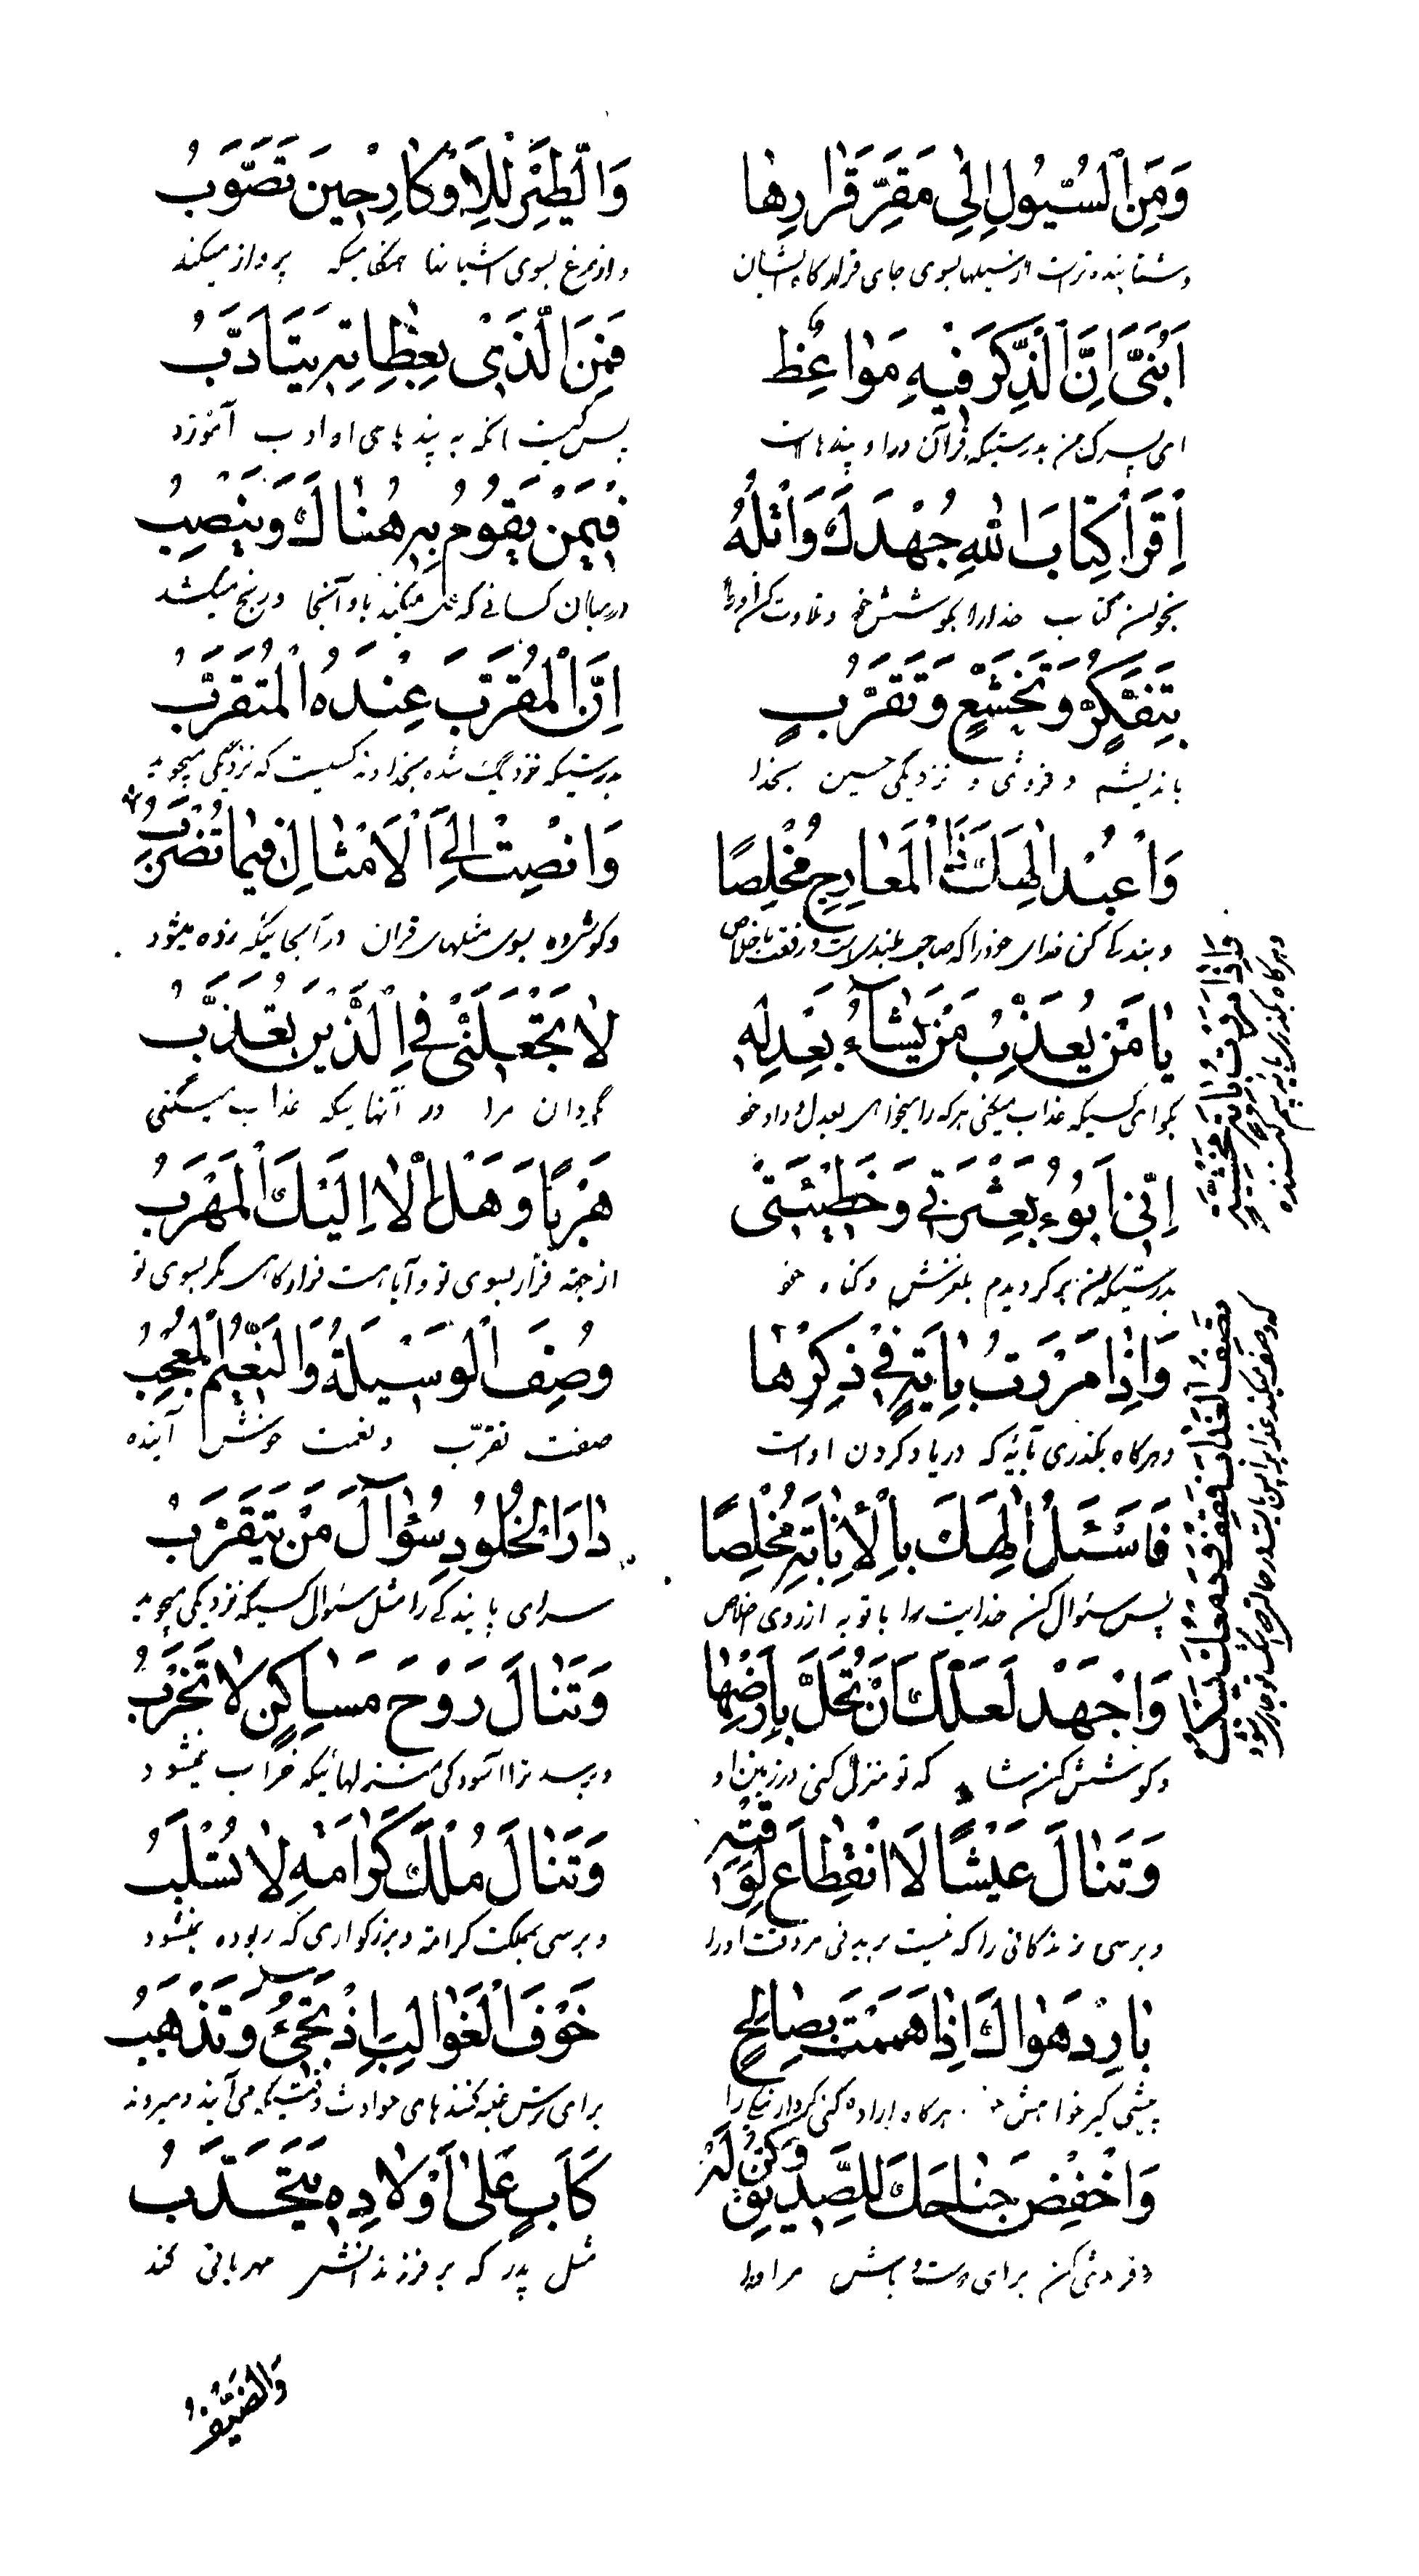 وَمِنَ السُّيُولِ اِلٰى مَقَرِّ قَرٰارِهٰا
وَالطَّيْرِ لِلْاَوْكٰارِ حِينَ تَصَوَّبُ
و شتابنده تر است از سیلها بسوی جای قرارگاه ایشان
و از مرغ بسوی آشیانها هنگامیکه پرواز میکند
اَبُنَىَّ اِنَّ الذِّكْرَ فِيهِ مَوٰاعِظٌ
فَمَنِ الَّذِى بِعِظٰاتِهِ يَتَاَدَّبُ
ای پسرک من بدرستیکه قرآن در او پندها است
پس کیست آنکه به پندهای او ادب آموزد
اِقْرَأْ كِتٰابَ اللّٰهِ جُهْدَكَ وَاتْلُهُ
فِيمَنْ يَقُومُ بِهِ هُنٰاكَ وَيَنْصِبُ
بخوان کتاب خدا را بکوشش خود و تلاوت کن او را
در میان کسانی که عمل میکنند باو آنجا و رنج میکشد
بِتَفَكُّرٍ وَتَخَشُّعٍ وَتَقَرُّبٍ
اِنَّ الْمُقَرَّبَ عِنْدَهُ الْمُتَقَرِّبُ
باندیشه و فروتنی و نزدیکی جستن بخدا
بدرستیکه نزدیک شده بخداوند کسیست که نزدیکی میجوید
وَاعْبُدْ اِلٰهَكَ ذَا الْمَعٰارِجِ مُخْلِصًا
وَانْصِتْ اِلَى الْاَمْثٰالِ فِيمٰا تُضْرَبُ
و بندگی کن خدای خود را که صاحب بلندیهاست و رفعت باخلاص
و گوش ده بسوی مثلهای قرآن در آنجائیکه زده میشود
وَاِذٰا مَرَرْتَ بِاٰيَةٍ مَخْشِيَّةٍ
و هرگاه بگذری بآیه بیم کننده
يٰا مَنْ يُعَذِّبُ مَنْ يَشٰآءُ بِعَدْلِهِ
لٰا تَجْعَلَنّى فِى الَّذينَ تُعَذِّبُ
بگو ای کسیکه عذاب میکنی هرکه را میخواهی بعدل و داد خود
مگردان مرا در آنهائیکه عذاب میکنی
اِنّى اَبُوءُ بِعَثْرَتى وَخَطيئَتى
هَرَبًا وَهَلْ اِلّٰا اِلَيْكَ الْمَهْرَبُ
بدرستیکه من برگردیدم بلغزش و گناه خود
از جهة فرار بسوی تو و آیا هست فرارگاهی مگر بسوی تو
وَاِذٰا مَرَرْتَ بِاٰيَةٍ فى ذِكْرِهٰا
وُصِفَ الْوَسيلَةُ وَالنَّعيمُ الْمُعْجِبُ
و هرگاه بگذری بآیه که در یاد کردن او است
صفت تقرّب و نعمت خوش آینده
فَاسْئَلْ اِلٰهَكَ بِالْاِنٰابَةِ مُخْلِصًا
دٰارَ الْخُلُودِ سُؤٰالَ مَنْ يَتَقَرَّبُ
پس سئوال کن خدایت را با توبه از روی اخلاص
سرای پایندگی را مثل سئوال کسیکه نزدیکی میجوید
وَاجْهَدْ لَعَلَّكَ اَنْ تَحُلَّ بِاَرْضِهٰا
وَتَنٰالَ رَوْحَ مَسٰاكِنٍ لٰا تَخْرَبُ
و کوشش کن شاید که تو منزل کنی در زمین او
و برسد ترا آسودگی منزلهائیکه خراب نمیشود
وَتَنٰالَ عَيْشًا لَا انْقِطٰاعَ لِوَقْتِهِ
وَتَنٰالَ مُلْكَ كَرٰامَةٍ لٰا تُسْلَبُ
و برسی زندگانی را که نیست بریدنی مر وقت او را
و برسی بمملکت کرامة و بزرگواری که ربوده نمیشود
بٰادِرْ هَوٰاكَ اِذٰا هَمَمْتَ بِصٰالِحٍ
خَوْفَ الْغَوٰالِبِ اِذْ تَجِئُ وَتَذْهَبُ
پیشی گیر خواهش خود هرگاه اراده کنی کردار نیک را
برای ترس غلبه کنندهای حوادث وقتیکه می آیند و میروند
وَاخْفِضْ جَنٰاحَكَ لِلصَّدِيقِ وَكُنْ لَهُ
كَاَبٍ عَلٰى اَوْلٰادِهِ يَتَحَدَّبُ
و فروتنی کن برای دوست و باش مر او را
مثل پدر که بر فرزندانش مهربانی کند
وَالضَّيْفَ